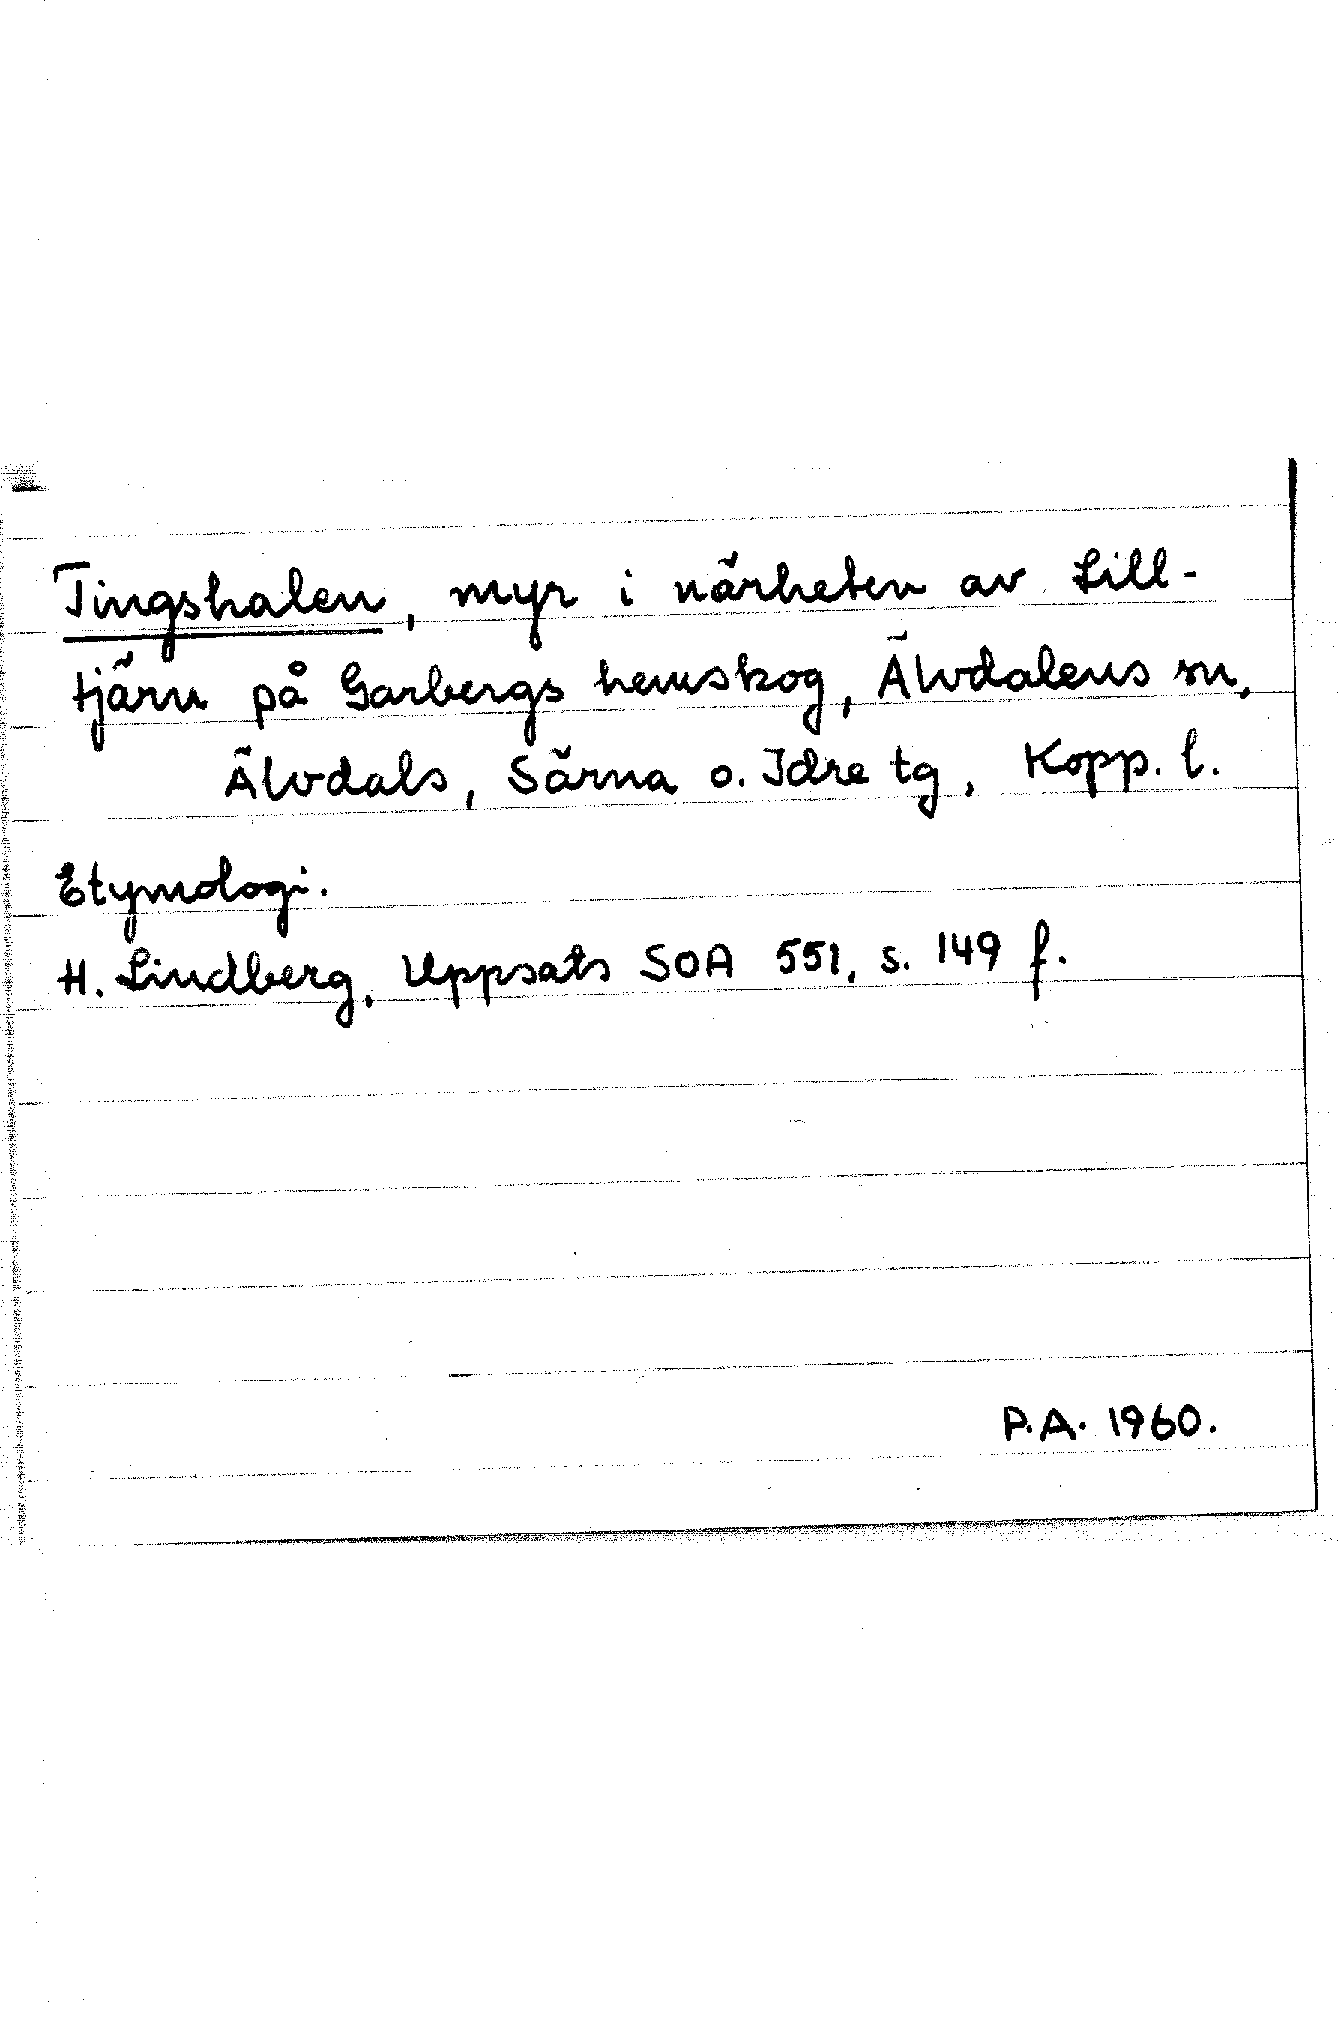 Tingshalen, myr i närheten av Lill-
tjärn på Garbergs hemskog, Älvdalens sn,
Älvdals, Särna o. Idre tg, Kopp. l.
Etymologi.
H. Lindberg, Uppsats SOA 551, s. 149 f.
P.A. 1960.